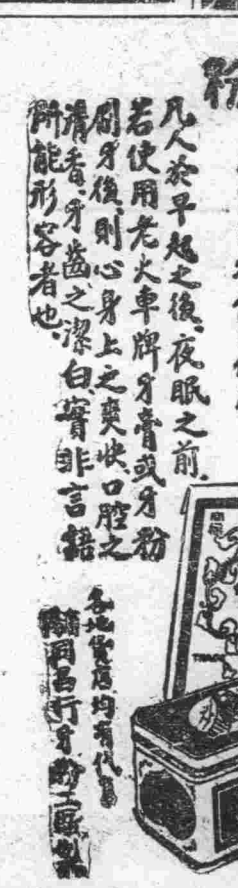 粉
凡人於早起之後、夜眠之前、
若使用老火車牌牙膏或牙粉
刷牙後、則心身上之爽快、口腔之
清香、牙齒之潔白、實非言語
所能形容者也、
各地寶店均有代售
同昌行牙粉工廠製